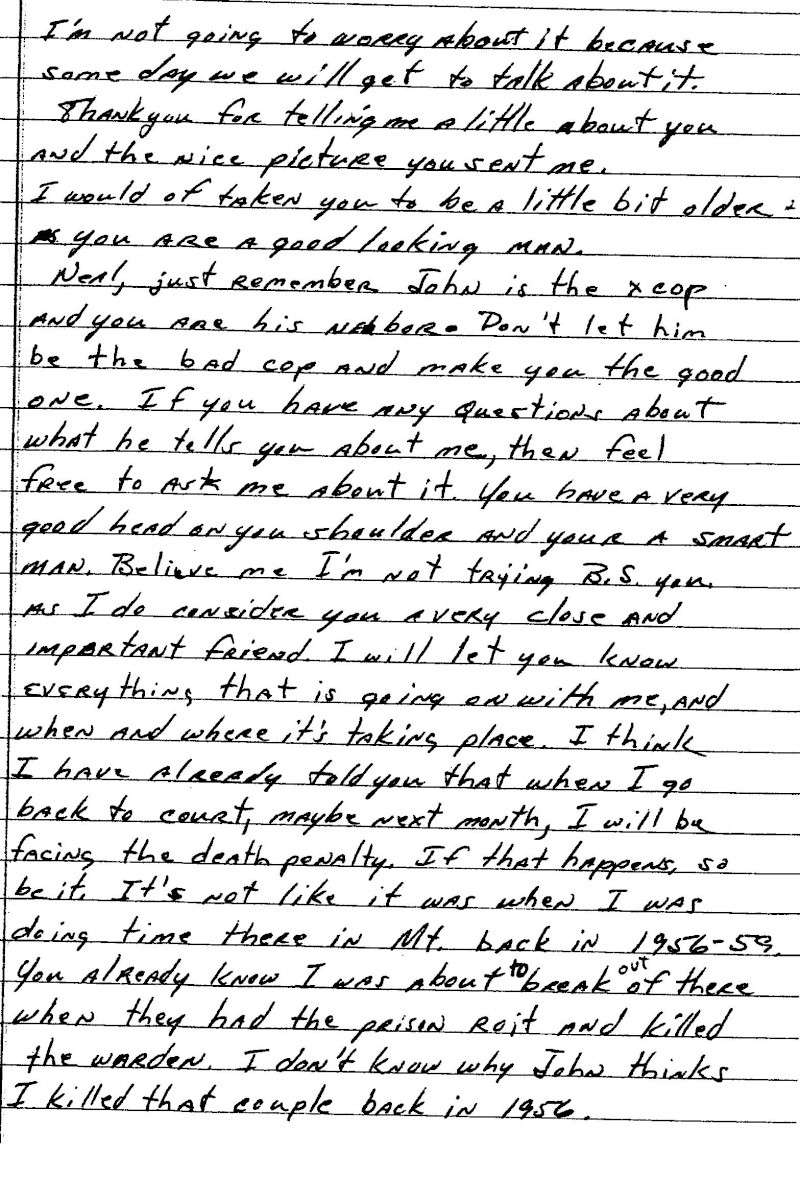 I'm not going to worry about it because
some day we will get to talk about it.
Thankyou for telling me a little about you
and the nice picture you sent me.
I would of taken you to be a little bit older
as you are a good looking man.
Neal, just remember John is the xcop
and you are his nehbor. Don't let him
be the bad cop and make you the good
one. If you have any questions about
what he tells you about me, then feel
free to ask me about it. You have a very
good head on you shoulder and your a smart
man. Believe me I'm not trying B.S. you.
as I do consider you a very close and
important friend. I will let you know
everything that is going on with me, and
when and where it's taking place. I think
I have already told you that when I go
back to court, maybe next month, I will be
facing the death penalty. If that happens, so
be it. It's not like it was when I was
doing time there in Mt. back in 1956-59.
You already know I was about to break out of there
when they had the prison roit and killed
the warden. I don't know why John thinks
I killed that couple back in 1956.